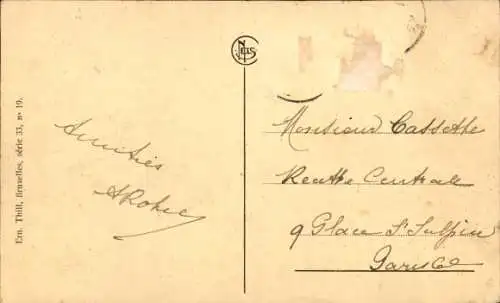 Ern. Thill, Bruxelles, série 33, n° 19.
NELS
Amitiés
Monsieur Cassethe
Centrale
9 Place St Sulpice
Paris 6e